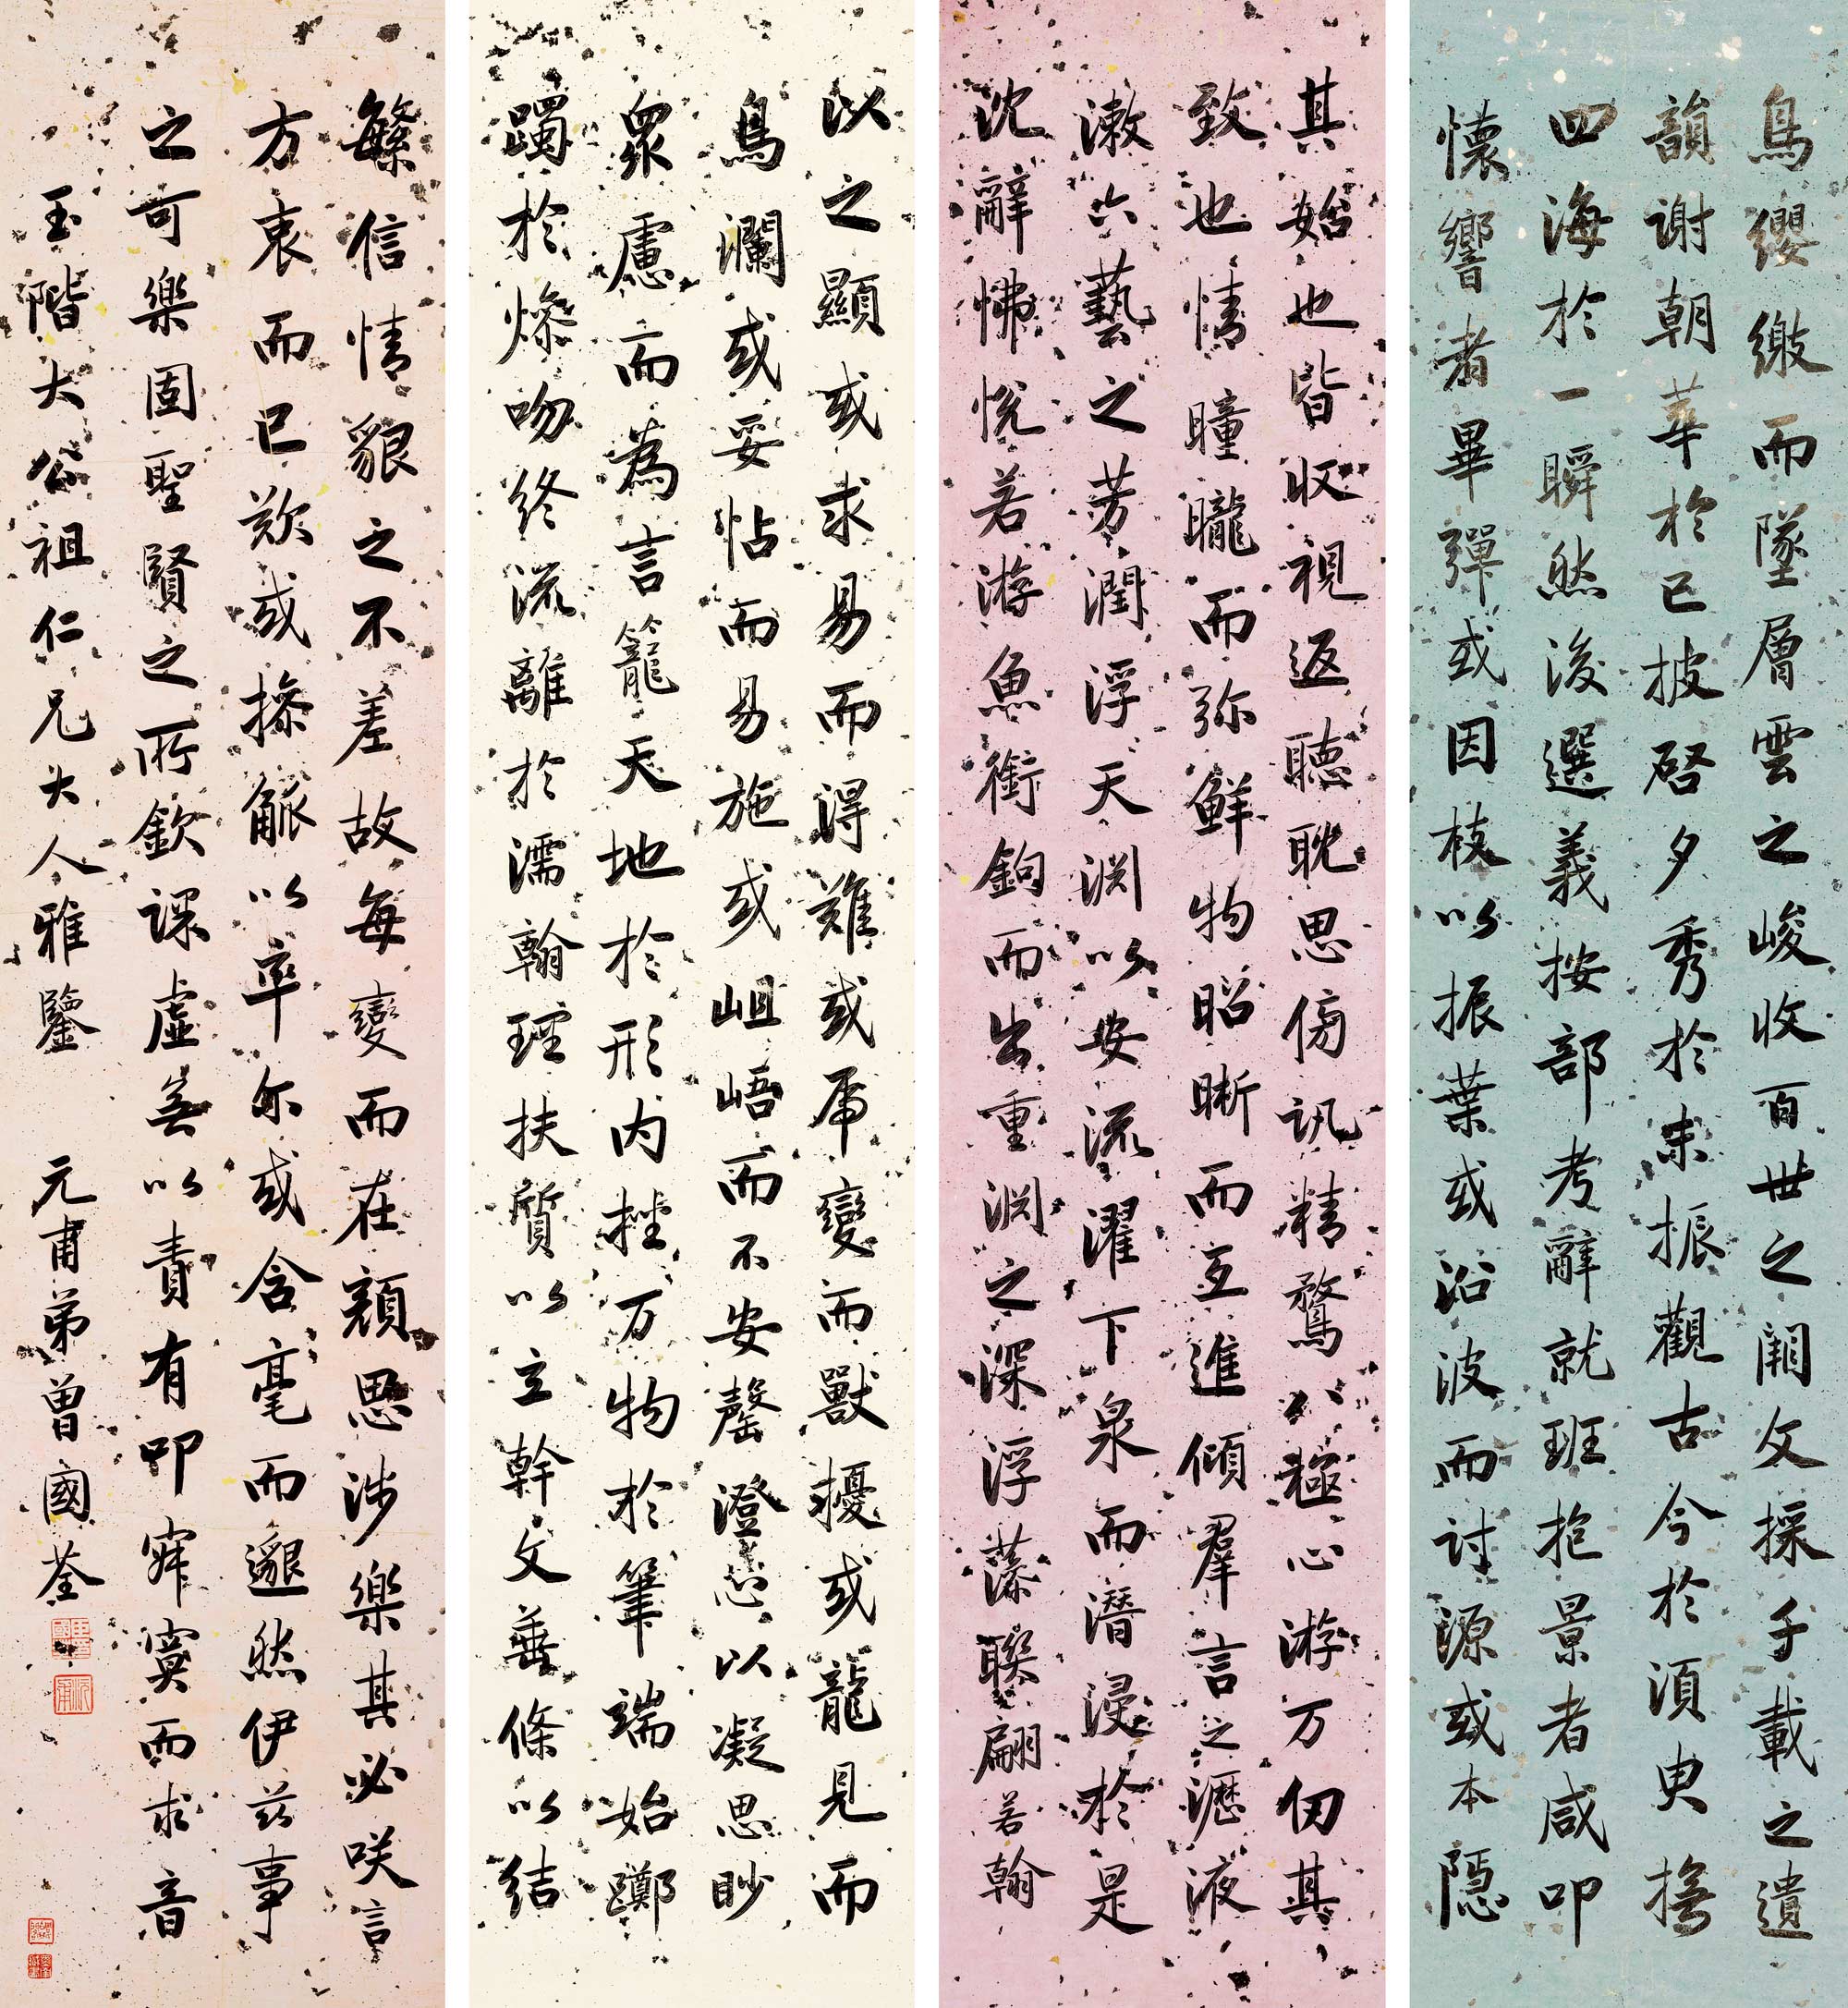 鳥纓繳而墜層雲之峻收百世之闕文採千載之遺
韻謝朝華於已披啓夕秀於未振觀古今於須臾撫
四海於一瞬然後選義按部考辭就班抱景者咸叩
懷響者畢彈或因枝以振葉或沿波而討源或本隱
其始也皆收視返聽耽思傍訊精騖八極心游万仞其
致也情曈曨而弥鮮物昭晰而互進傾羣言之瀝液
漱六藝之芳潤浮天淵以安流濯下泉而潛浸於是
沈辭怫悅若游魚銜鉤而出重淵之深浮藻聯翩若翰
以之顯或求易而得難或虎變而獸擾或龍見而
鳥瀾或妥帖而易施或岨峿而不安罄澄心以凝思眇
眾慮而為言籠天地於形内挫万物於筆端始躑
躅於燥吻終流離於濡翰理扶質以立幹文垂條以結
繁信情貌之不差故每變而在顏思涉樂其必咲言
方哀而已歎或操觚以率尔或含毫而邈然伊茲事
之可樂固聖賢之所欽課虛無以責有叩寂寞而求音
玉階大公祖仁兄大人雅鑒 元甫弟曾國荃